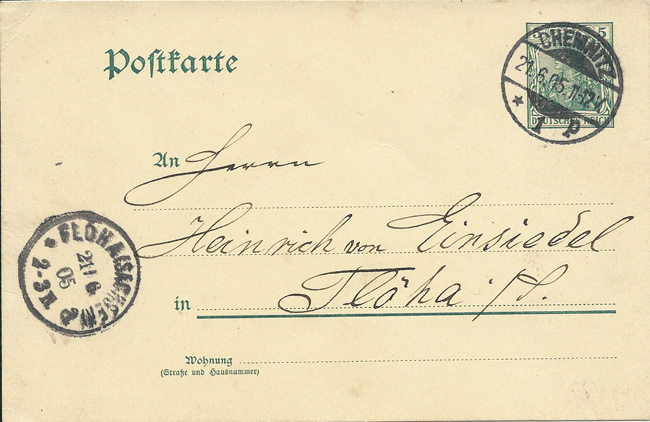 Postkarte
5
CHEMNITZ
21.6.05.
* 1 p
DEUTSCHES REICH
An Herrn
Heinrich von Einsiedel
in Flöha i/S.
FLÖHA (SACHSEN)
21/6
05
* 2-3 N.
Wohnung
(Straße und Hausnummer)